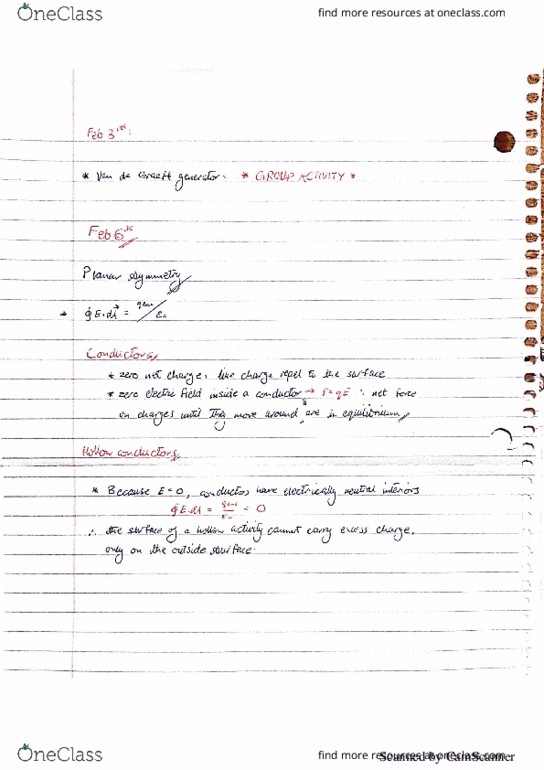 OneClass
find more resources at oneclass.com
Feb 3
* Van de Graeff generator. * GROUP ACTIVITY *
Feb 6th
Planar symmetry
→ ∮E.ds⃗ = qenc/ε₀
Conductors,
* zero net charge, like charge repel to the surface
* zero electric field inside a conductor → F=qE ∴ net force
on charges until they move around, are in equilibrium,
Hollow conductors,
* Because E=0, conductors have electrically neutral interiors
∮E.ds = qenc = 0
∴ the surface of a hollow activity cannot carry excess charge,
only on the outside surface.
OneClass
find more resources at oneclass.com
Scanned by CamScanner